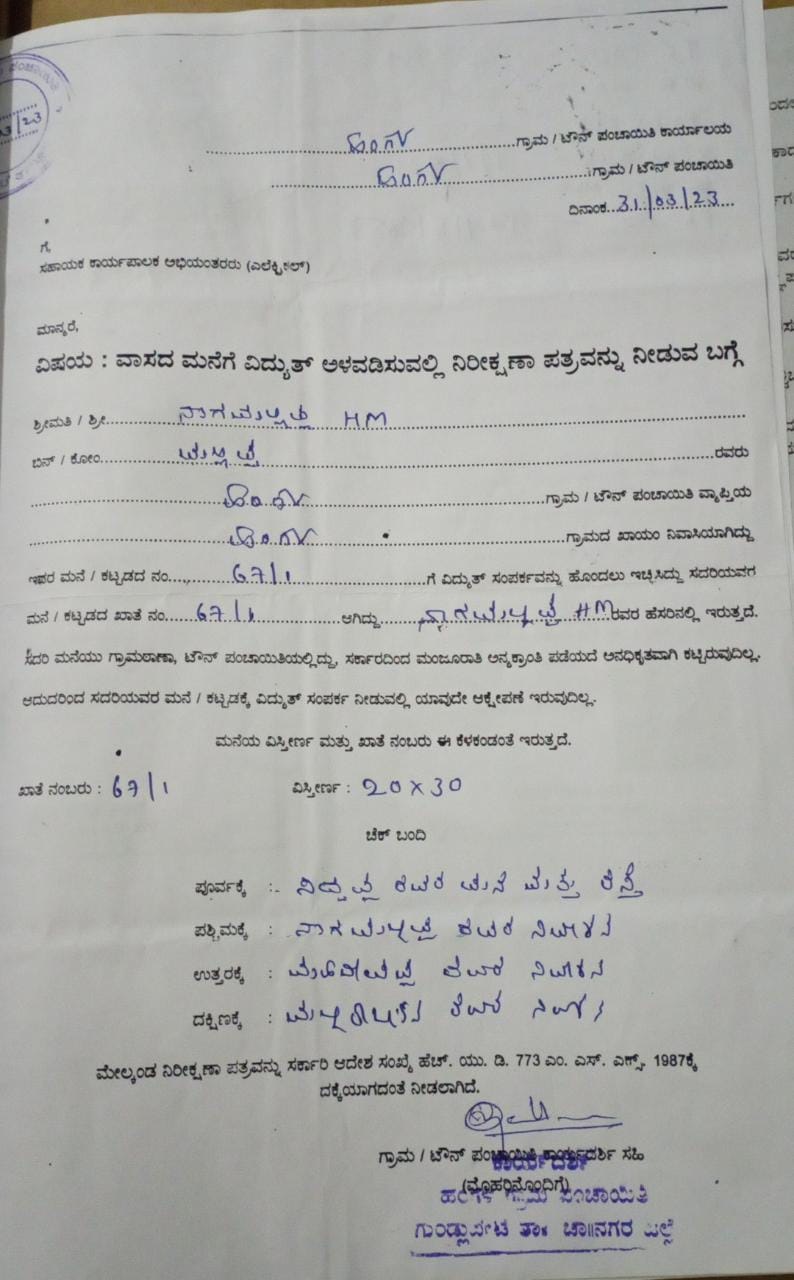 ಪಂಚಾಯಿತಿ
03/23
ಹಂಗಳ ಗ್ರಾಮ / ಟೌನ್ ಪಂಚಾಯಿತಿ ಕಾರ್ಯಾಲಯ
ಹಂಗಳ ಗ್ರಾಮ / ಟೌನ್ ಪಂಚಾಯಿತಿ
ದಿನಾಂಕ 31/03/23
ಗೆ,
ಸಹಾಯಕ ಕಾರ್ಯಪಾಲಕ ಅಭಿಯಂತರರು (ಎಲೆಕ್ಟ್ರಿಕಲ್)
ಮಾನ್ಯರೆ,
ವಿಷಯ : ವಾಸದ ಮನೆಗೆ ವಿದ್ಯುತ್ ಅಳವಡಿಸುವಲ್ಲಿ ನಿರೀಕ್ಷಣಾ ಪತ್ರವನ್ನು ನೀಡುವ ಬಗ್ಗೆ
ಶ್ರೀಮತಿ / ಶ್ರೀ ನಾಗಮಲ್ಲಪ್ಪ HM
ಬಿನ್ / ಕೋಂ ಮಲ್ಲಪ್ಪ ರವರು
ಹಂಗಳ ಗ್ರಾಮ / ಟೌನ್ ಪಂಚಾಯಿತಿ ವ್ಯಾಪ್ತಿಯ
ಹಂಗಳ ಗ್ರಾಮದ ಖಾಯಂ ನಿವಾಸಿಯಾಗಿದ್ದು
ಇವರ ಮನೆ / ಕಟ್ಟಡದ ನಂ. 67/1 ಗೆ ವಿದ್ಯುತ್ ಸಂಪರ್ಕವನ್ನು ಹೊಂದಲು ಇಚ್ಛಿಸಿದ್ದು ಸದರಿಯವರ
ಮನೆ / ಕಟ್ಟಡದ ಖಾತೆ ನಂ. 67/1 ಆಗಿದ್ದು ನಾಗಮಲ್ಲಪ್ಪ HM ರವರ ಹೆಸರಿನಲ್ಲಿ ಇರುತ್ತದೆ.
ಸದರಿ ಮನೆಯು ಗ್ರಾಮಠಾಣಾ, ಟೌನ್ ಪಂಚಾಯಿತಿಯಲ್ಲಿದ್ದು, ಸರ್ಕಾರದಿಂದ ಮಂಜೂರಾತಿ ಅನ್ಯಕ್ರಾಂತಿ ಪಡೆಯದೆ ಅನಧಿಕೃತವಾಗಿ ಕಟ್ಟಿರುವುದಿಲ್ಲ.
ಆದುದರಿಂದ ಸದರಿಯವರ ಮನೆ / ಕಟ್ಟಡಕ್ಕೆ ವಿದ್ಯುತ್ ಸಂಪರ್ಕ ನೀಡುವಲ್ಲಿ ಯಾವುದೇ ಆಕ್ಷೇಪಣೆ ಇರುವುದಿಲ್ಲ.
ಮನೆಯ ವಿಸ್ತೀರ್ಣ ಮತ್ತು ಖಾತೆ ನಂಬರು ಈ ಕೆಳಕಂಡಂತೆ ಇರುತ್ತದೆ.
ಖಾತೆ ನಂಬರು : 67/1 ವಿಸ್ತೀರ್ಣ : 20 x 30
ಚೆಕ್ ಬಂದಿ
ಪೂರ್ವಕ್ಕೆ :- ಸಿದ್ದಪ್ಪ ರವರ ಮನೆ ಮತ್ತು ರಸ್ತೆ
ಪಶ್ಚಿಮಕ್ಕೆ : ನಾಗಮಲ್ಲಪ್ಪ ರವರ ನಿವೇಶನ
ಉತ್ತರಕ್ಕೆ : ಮಹದೇವಪ್ಪ ರವರ ನಿವೇಶನ
ದಕ್ಷಿಣಕ್ಕೆ : ರವರ
ಮೇಲ್ಕಂಡ ನಿರೀಕ್ಷಣಾ ಪತ್ರವನ್ನು ಸರ್ಕಾರಿ ಆದೇಶ ಸಂಖ್ಯೆ ಹೆಚ್. ಯು. ಡಿ. 773 ಎಂ. ಎಸ್. ಎಕ್ಸ್. 1987ಕ್ಕೆ
ದಕ್ಕೆಯಾಗದಂತೆ ನೀಡಲಾಗಿದೆ.
ಗ್ರಾಮ / ಟೌನ್ ಪಂಚಾಯಿತಿ ಕಾರ್ಯದರ್ಶಿ ಸಹಿ
ಕಾರ್ಯದರ್ಶಿ
(ಮೊಹರಿನೊಂದಿಗೆ)
ಹಂಗಳ ಗ್ರಾಮ ಪಂಚಾಯಿತಿ
ಗುಂಡ್ಲುಪೇಟೆ ತಾ॥ ಚಾ॥ನಗರ ಜಿಲ್ಲೆ